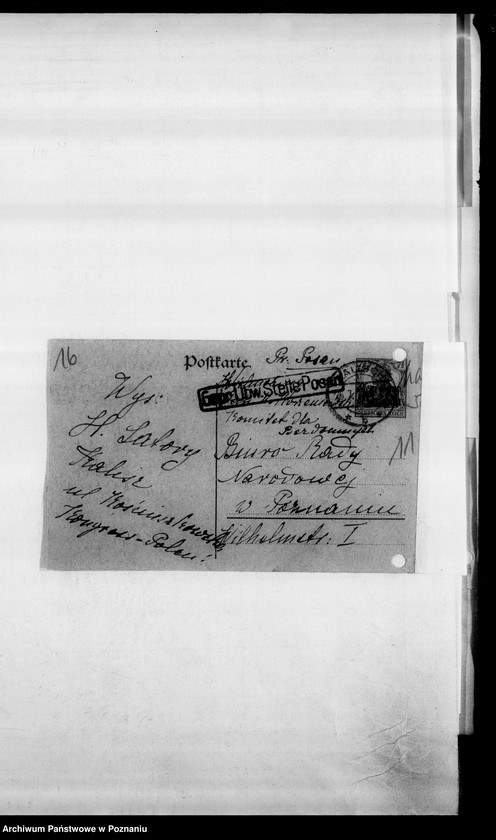 16
Postkarte
Pr. Posen
Gepr. Übw. Stelle Posen
Wys:
H. Latovy
Kalisz
ul. Kościuszkowska
Kongress-Polen!
Komitet dla
Bezdomnych
Biuro Rady
Narodowej
w Poznaniu
Wilhelmstr: I
11
Archiwum Państwowe w Poznaniu